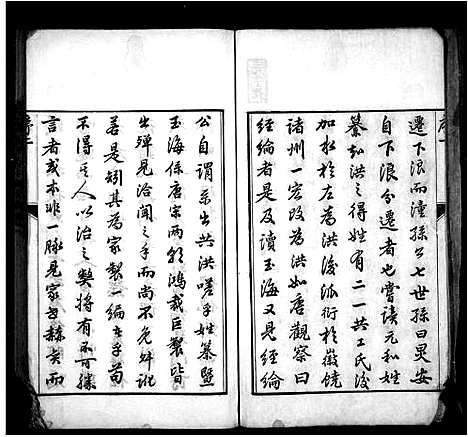 遷下浪而潼孫公七世孫曰炅安
自下浪分遷者也嘗讀元和姓
纂知洪之得姓有二一共工氏後
加水於左為洪後派衍於徽饒
諸州一宏改為洪如唐觀察曰
經綸者是及讀玉海又見經綸
公自謂系出共洪嗟乎姓纂暨
玉海係唐宋兩朝鴻裁巨製皆
出殫見洽聞之手而尚不免舛訛
若是矧其為家製一編在手苟
不得其人以治之弊將有不可勝
言者或本非一脈見家世赫奕而